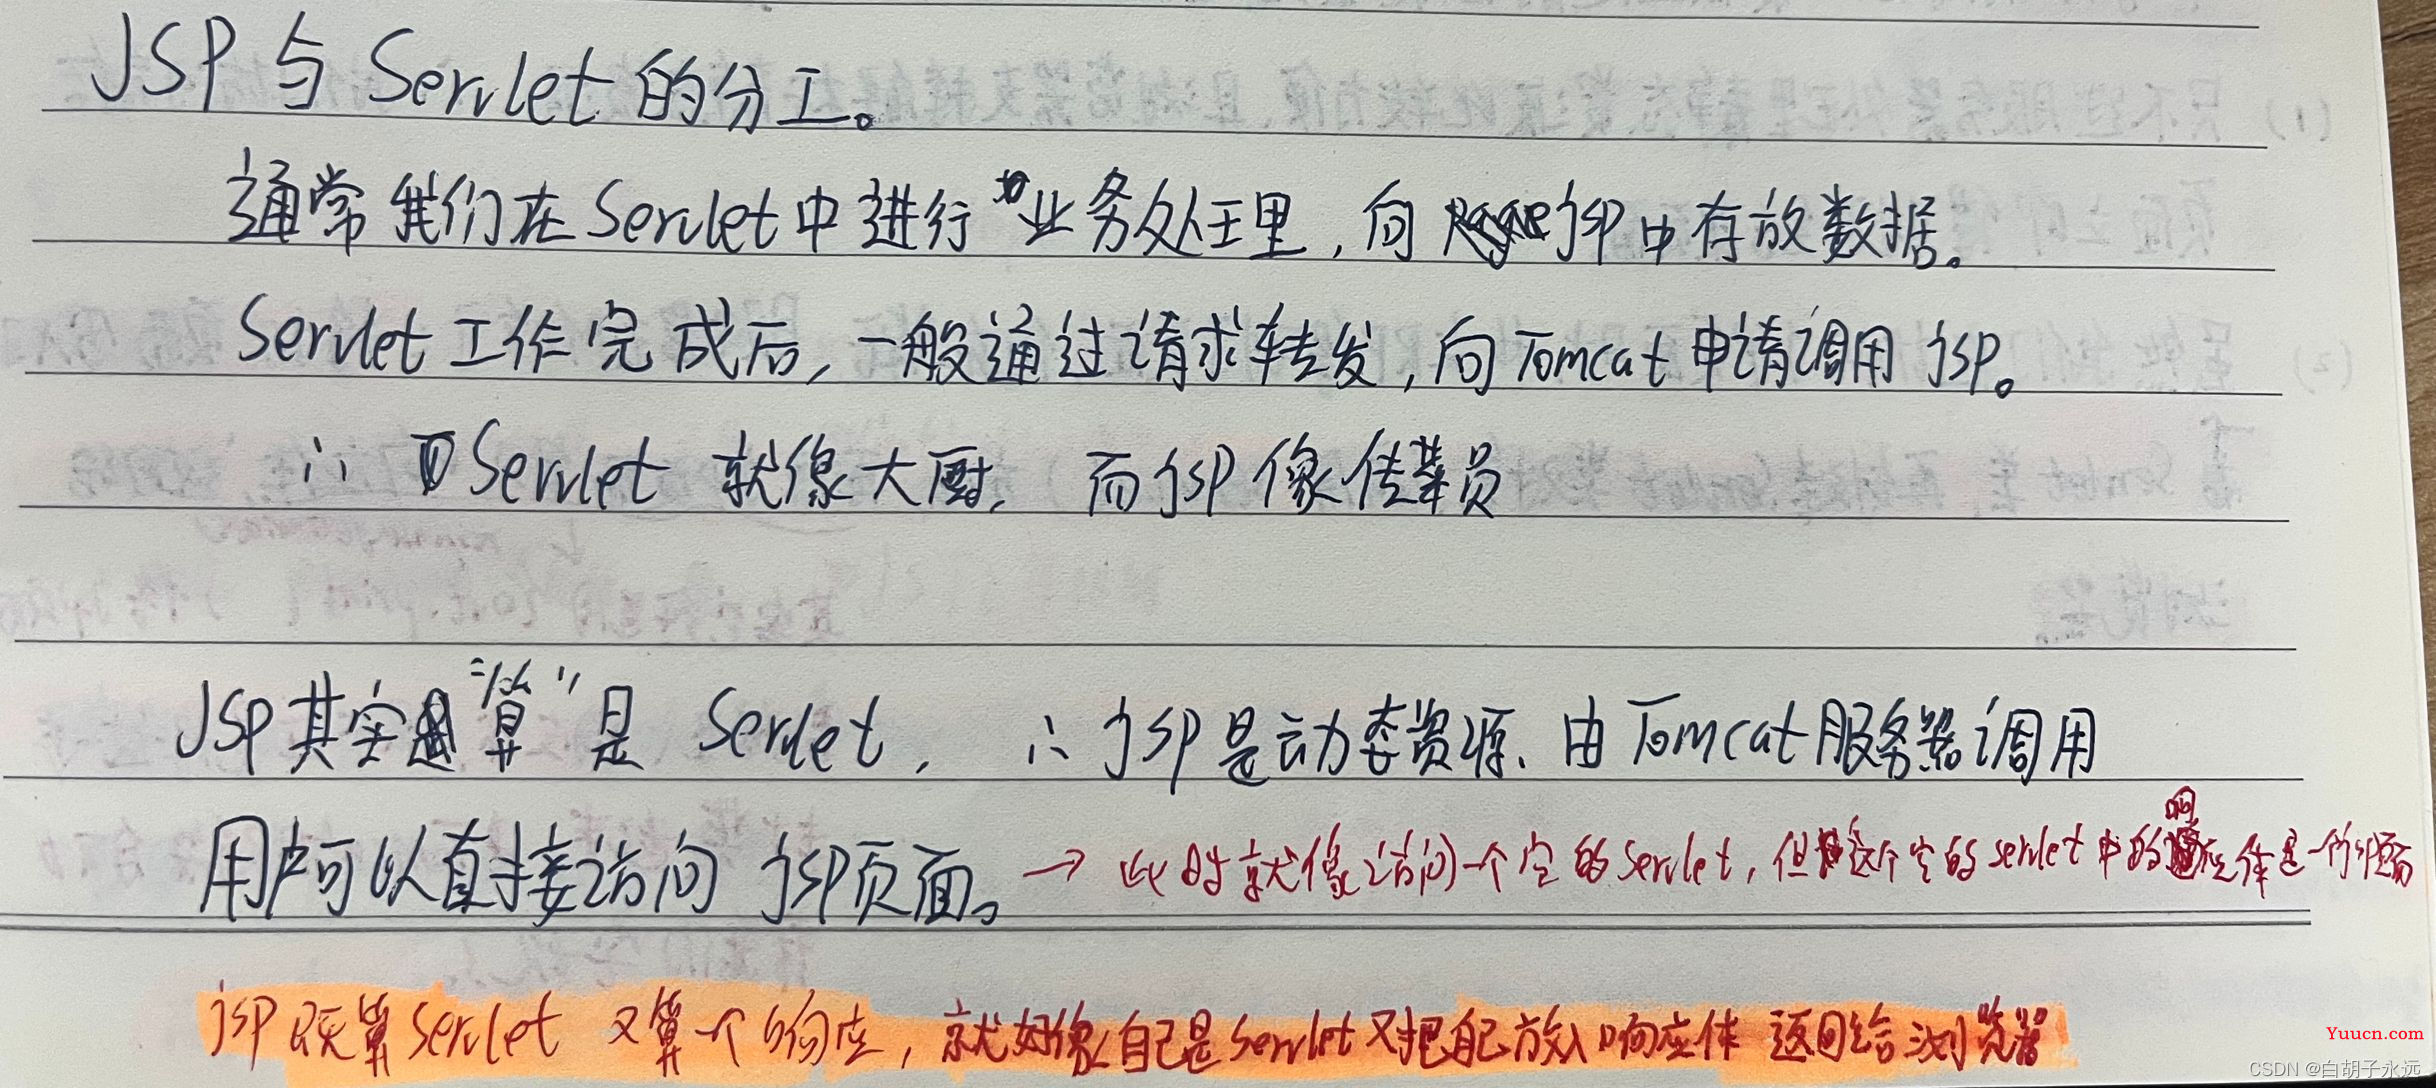 JSP与Servlet的分工。
通常我们在Servlet中进行业务处理,向jsp中存放数据。
Servlet工作完成后,一般通过请求转发,向Tomcat申请调用jsp。
∴ Servlet就像大厨,而jsp像传菜员
JSP其实“算”是Servlet,∴jsp是动态资源、由Tomcat服务器调用
用户可以直接访问jsp页面。→此时就像访问一个空的Servlet,但这个空的servlet中的响应体是一个jsp页面
jsp既算Servlet又算一个响应,就好像自己是Servlet又把自己放入响应体 返回给浏览器
Yuucn.com
CSDN @白胡子永远